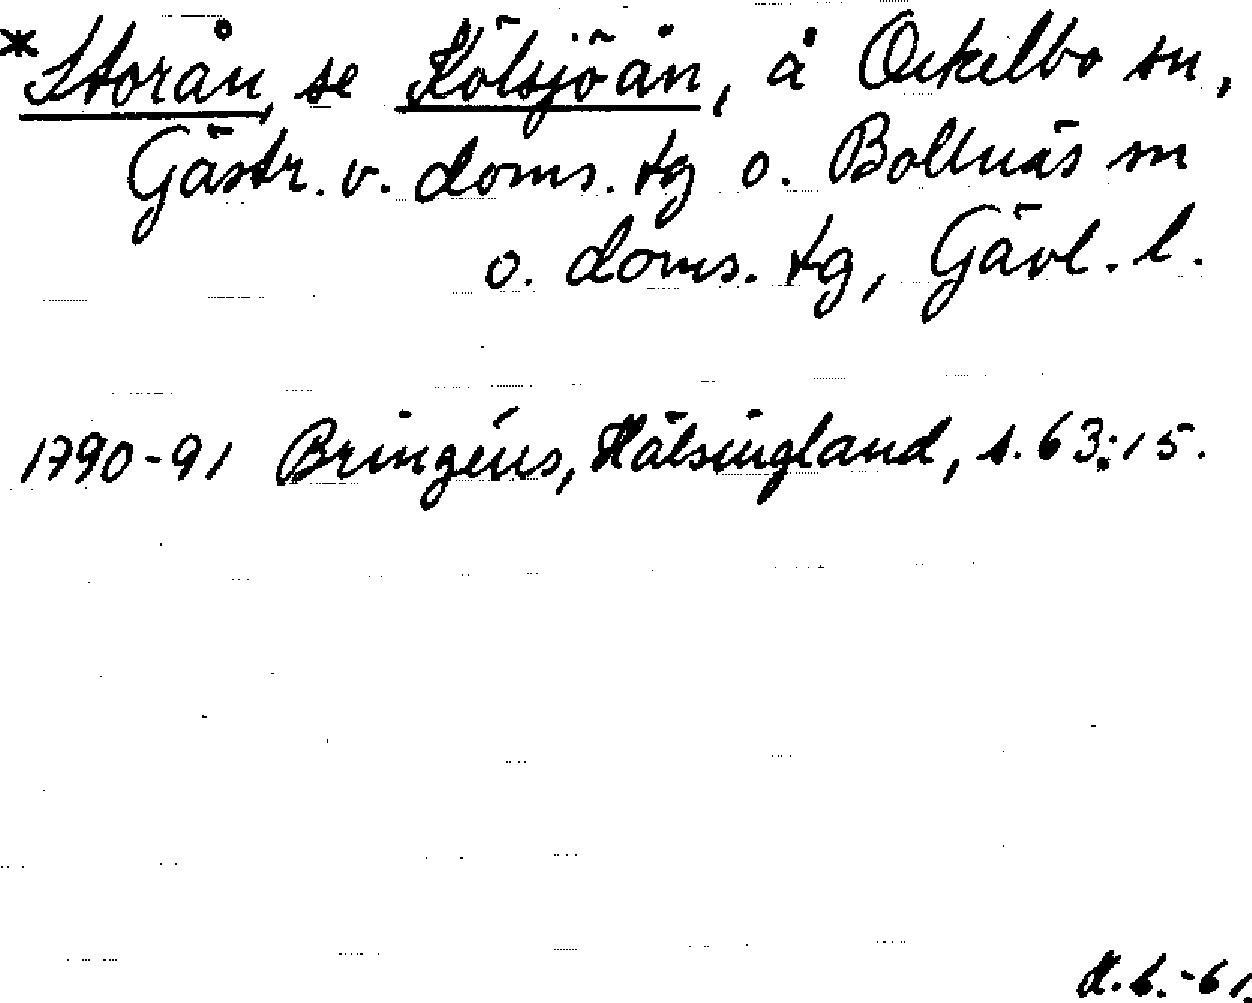 *Storån, se Kölsjöån, å Ockelbo sn,
Gästr. v. doms. tg o. Bollnäs sn
o. doms. tg, Gävl. l.
1790-91 Bringéus, Hälsingland, s. 63:15.
-61.